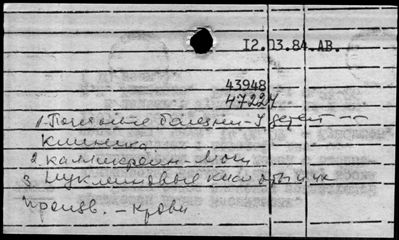 12.03.84.АВ.
43948
47224
1. Почечные болезни - У детей --
клиника
2 калликреин - Мочи
3 Нуклеиновые кислоты и их
произв. - крови